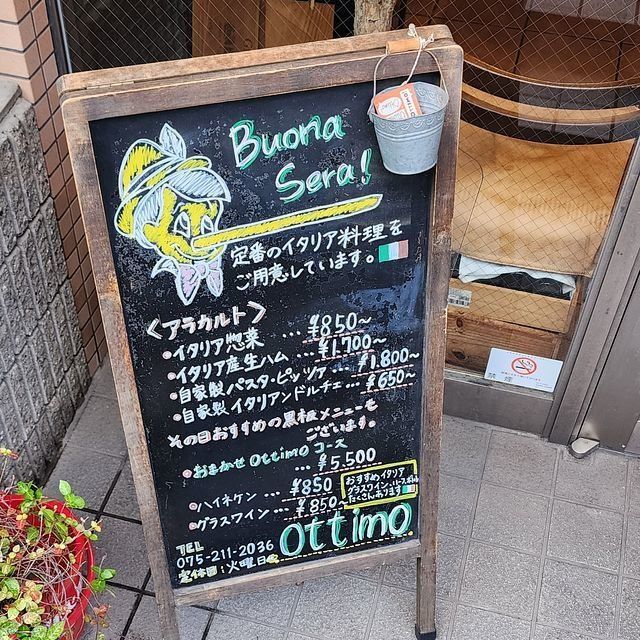 Buona
Sera!
定番のイタリア料理を
ご用意しています。
<アラカルト>
・イタリア惣菜 … ¥850~
・イタリア産生ハム … ¥1,700~
・自家製パスタ・ピッツァ … ¥1,800~
・自家製イタリアンドルチェ … ¥650~
その日おすすめの黒板メニューも
ございます。
・おまかせ Ottimo コース
… ¥5,500
・ハイネケン … ¥850
・グラスワイン … ¥850~
おすすめイタリア
グラスワイン、
たくさんあります
Ottimo
TEL
075-211-2036
定休日:火曜日
禁煙